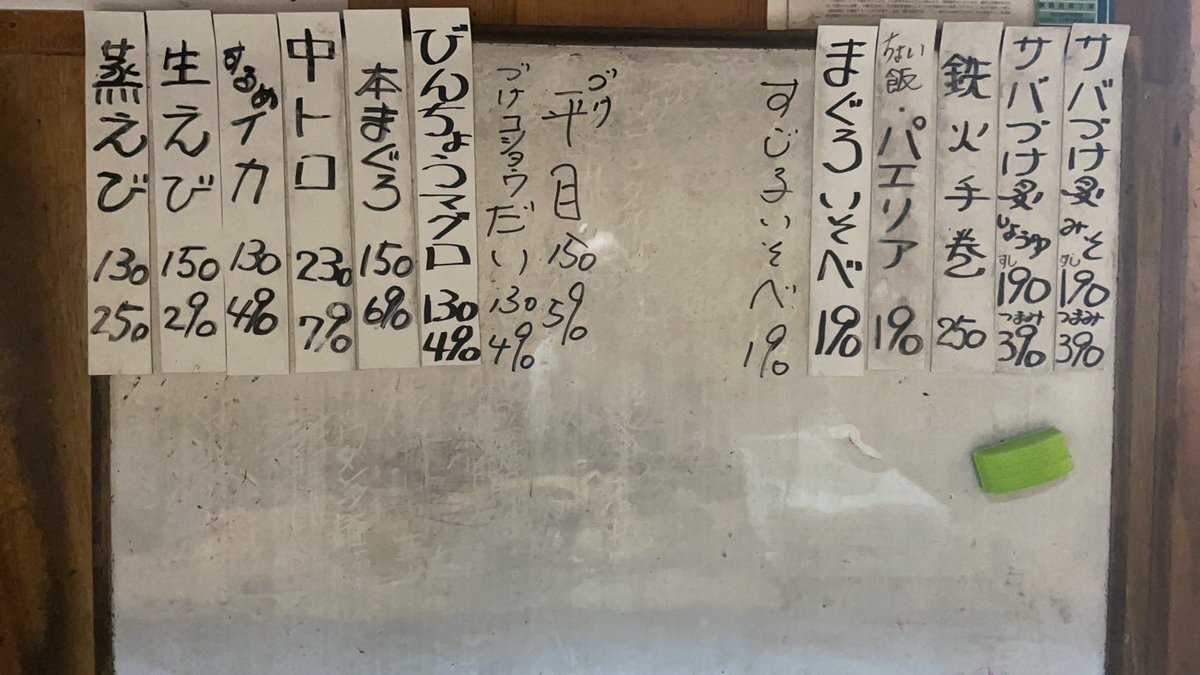 サバづけ炙 みそ すし 190 つまみ 390
サバづけ炙 しょうゆ すし 190 つまみ 390
鉄火手巻 250
ちょい飯・パエリア 190
まぐろいそべ 190
すじるいそべ 190
づけ平目 150 590
づけコショウだい 130 490
びんちょうマグロ 130 490
本まぐろ 150 690
中トロ 230 790
するめイカ 130 490
生えび 150 290
蒸えび 130 250